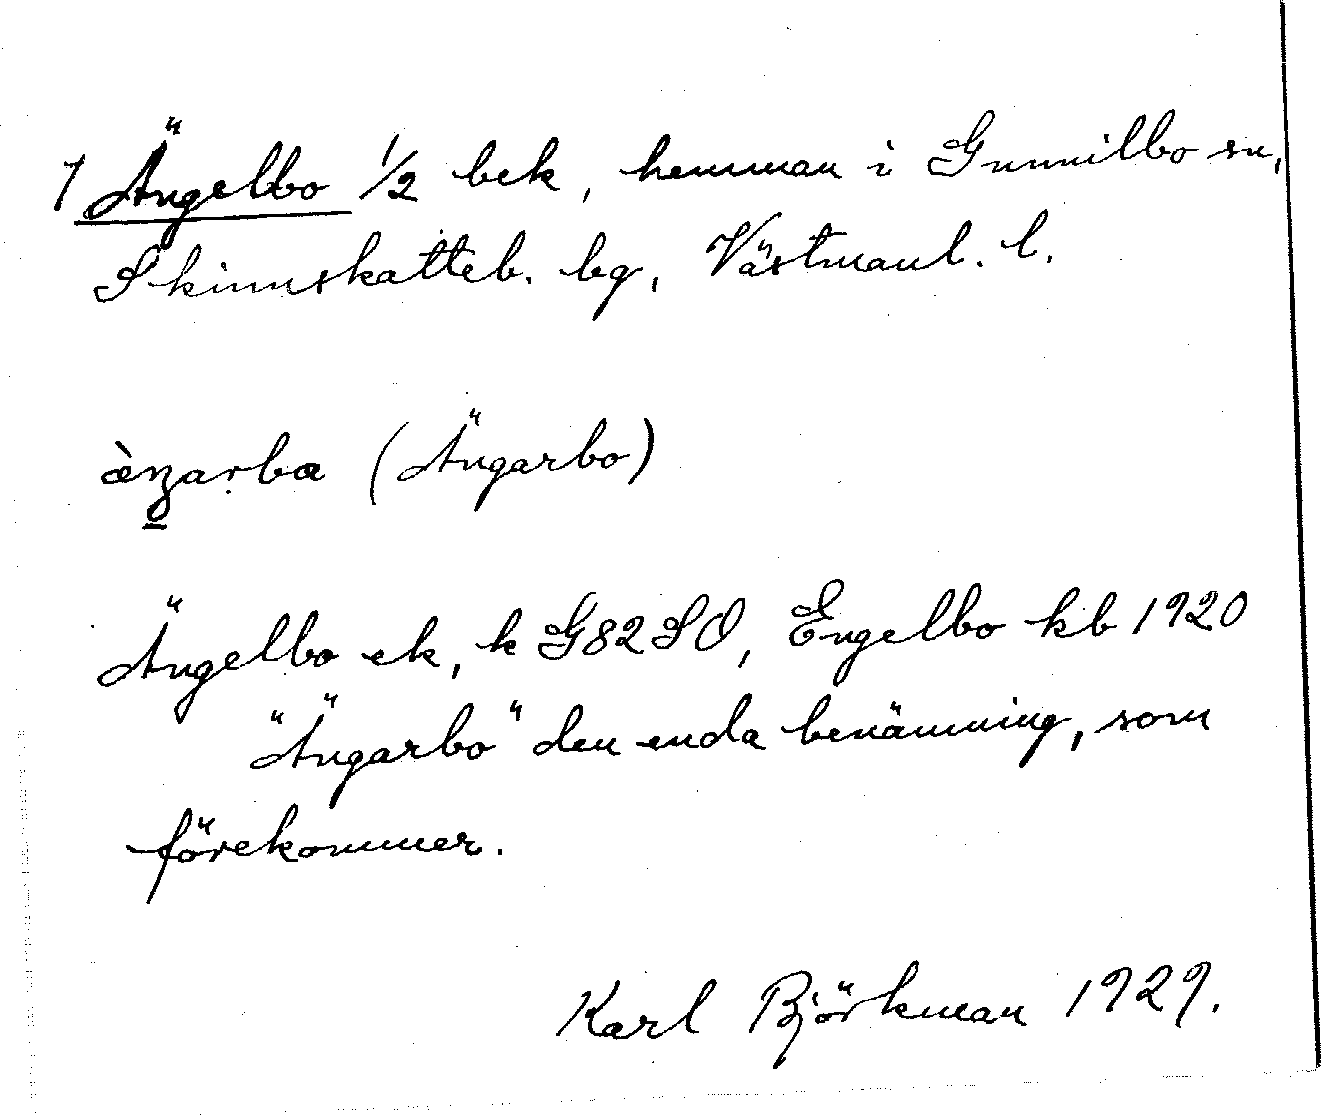 1 Ängelbo 1/2 bek, hemman i Gunnilbo sn,
Skinnskatteb. hg, Västmanl. l.
(Ängarbo)
Ängelbo ek, k G82SO, Engelbo kb 1920
"Ängarbo" den enda benämning, som
förekommer.
Karl Björkman 1929.